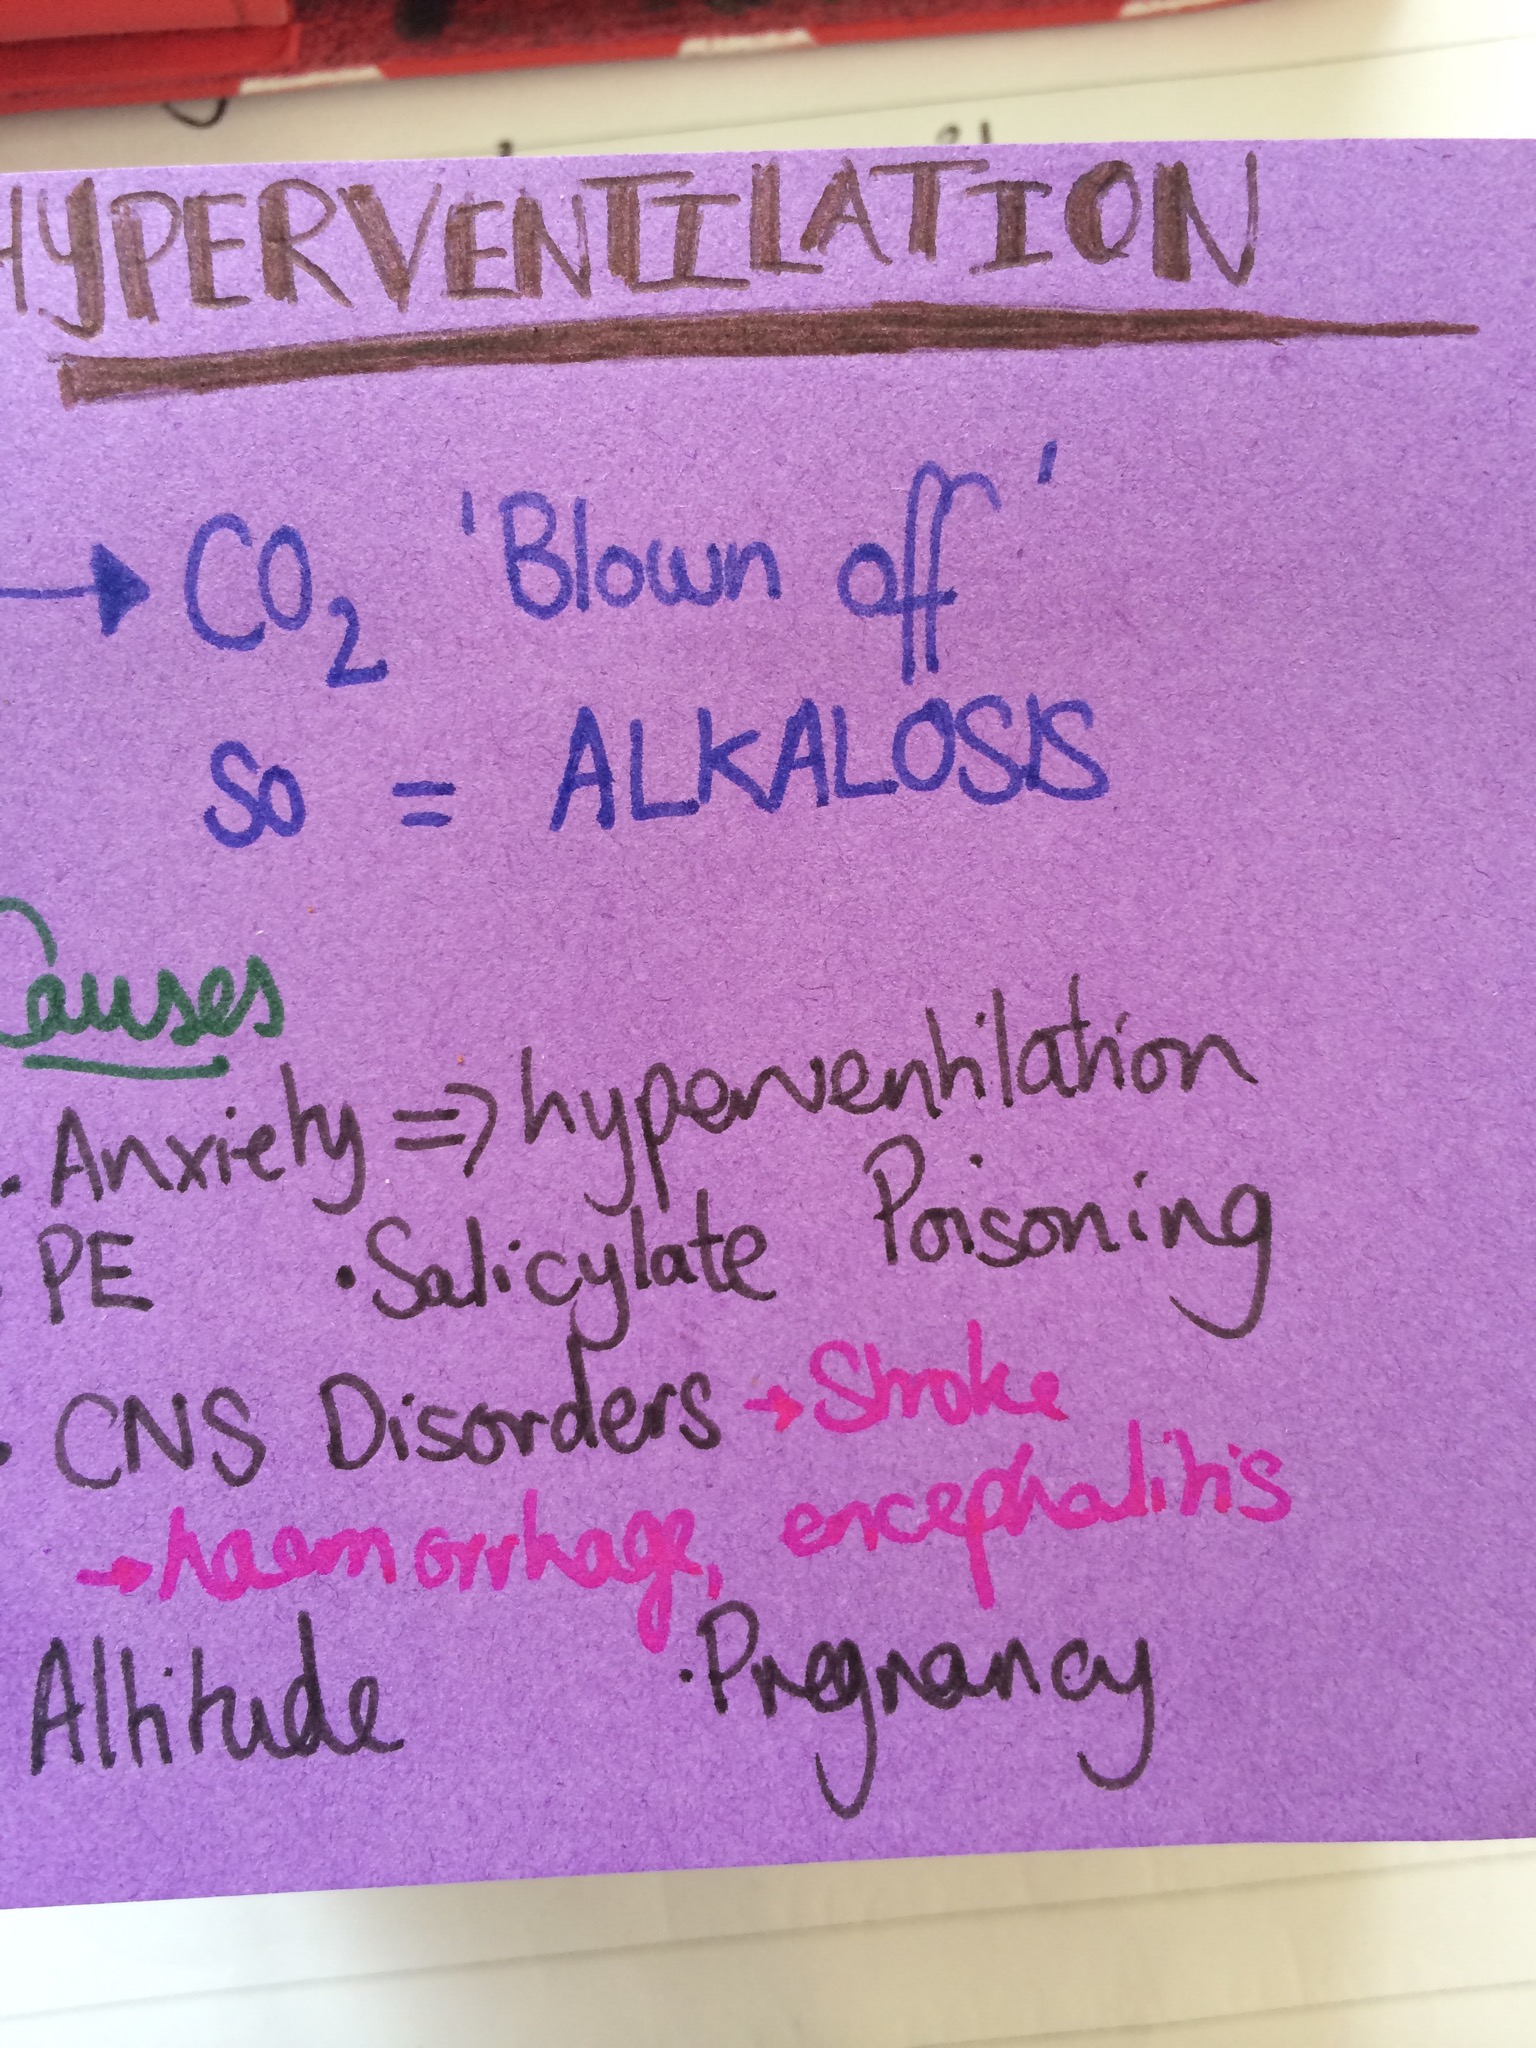 HYPERVENTILATION
→ CO₂ 'Blown off'
So = ALKALOSIS
Causes
• Anxiety => hyperventilation
• PE • Salicylate Poisoning
• CNS Disorders → Stroke
→ haemorrhage, encephalitis
Altitude • Pregnancy